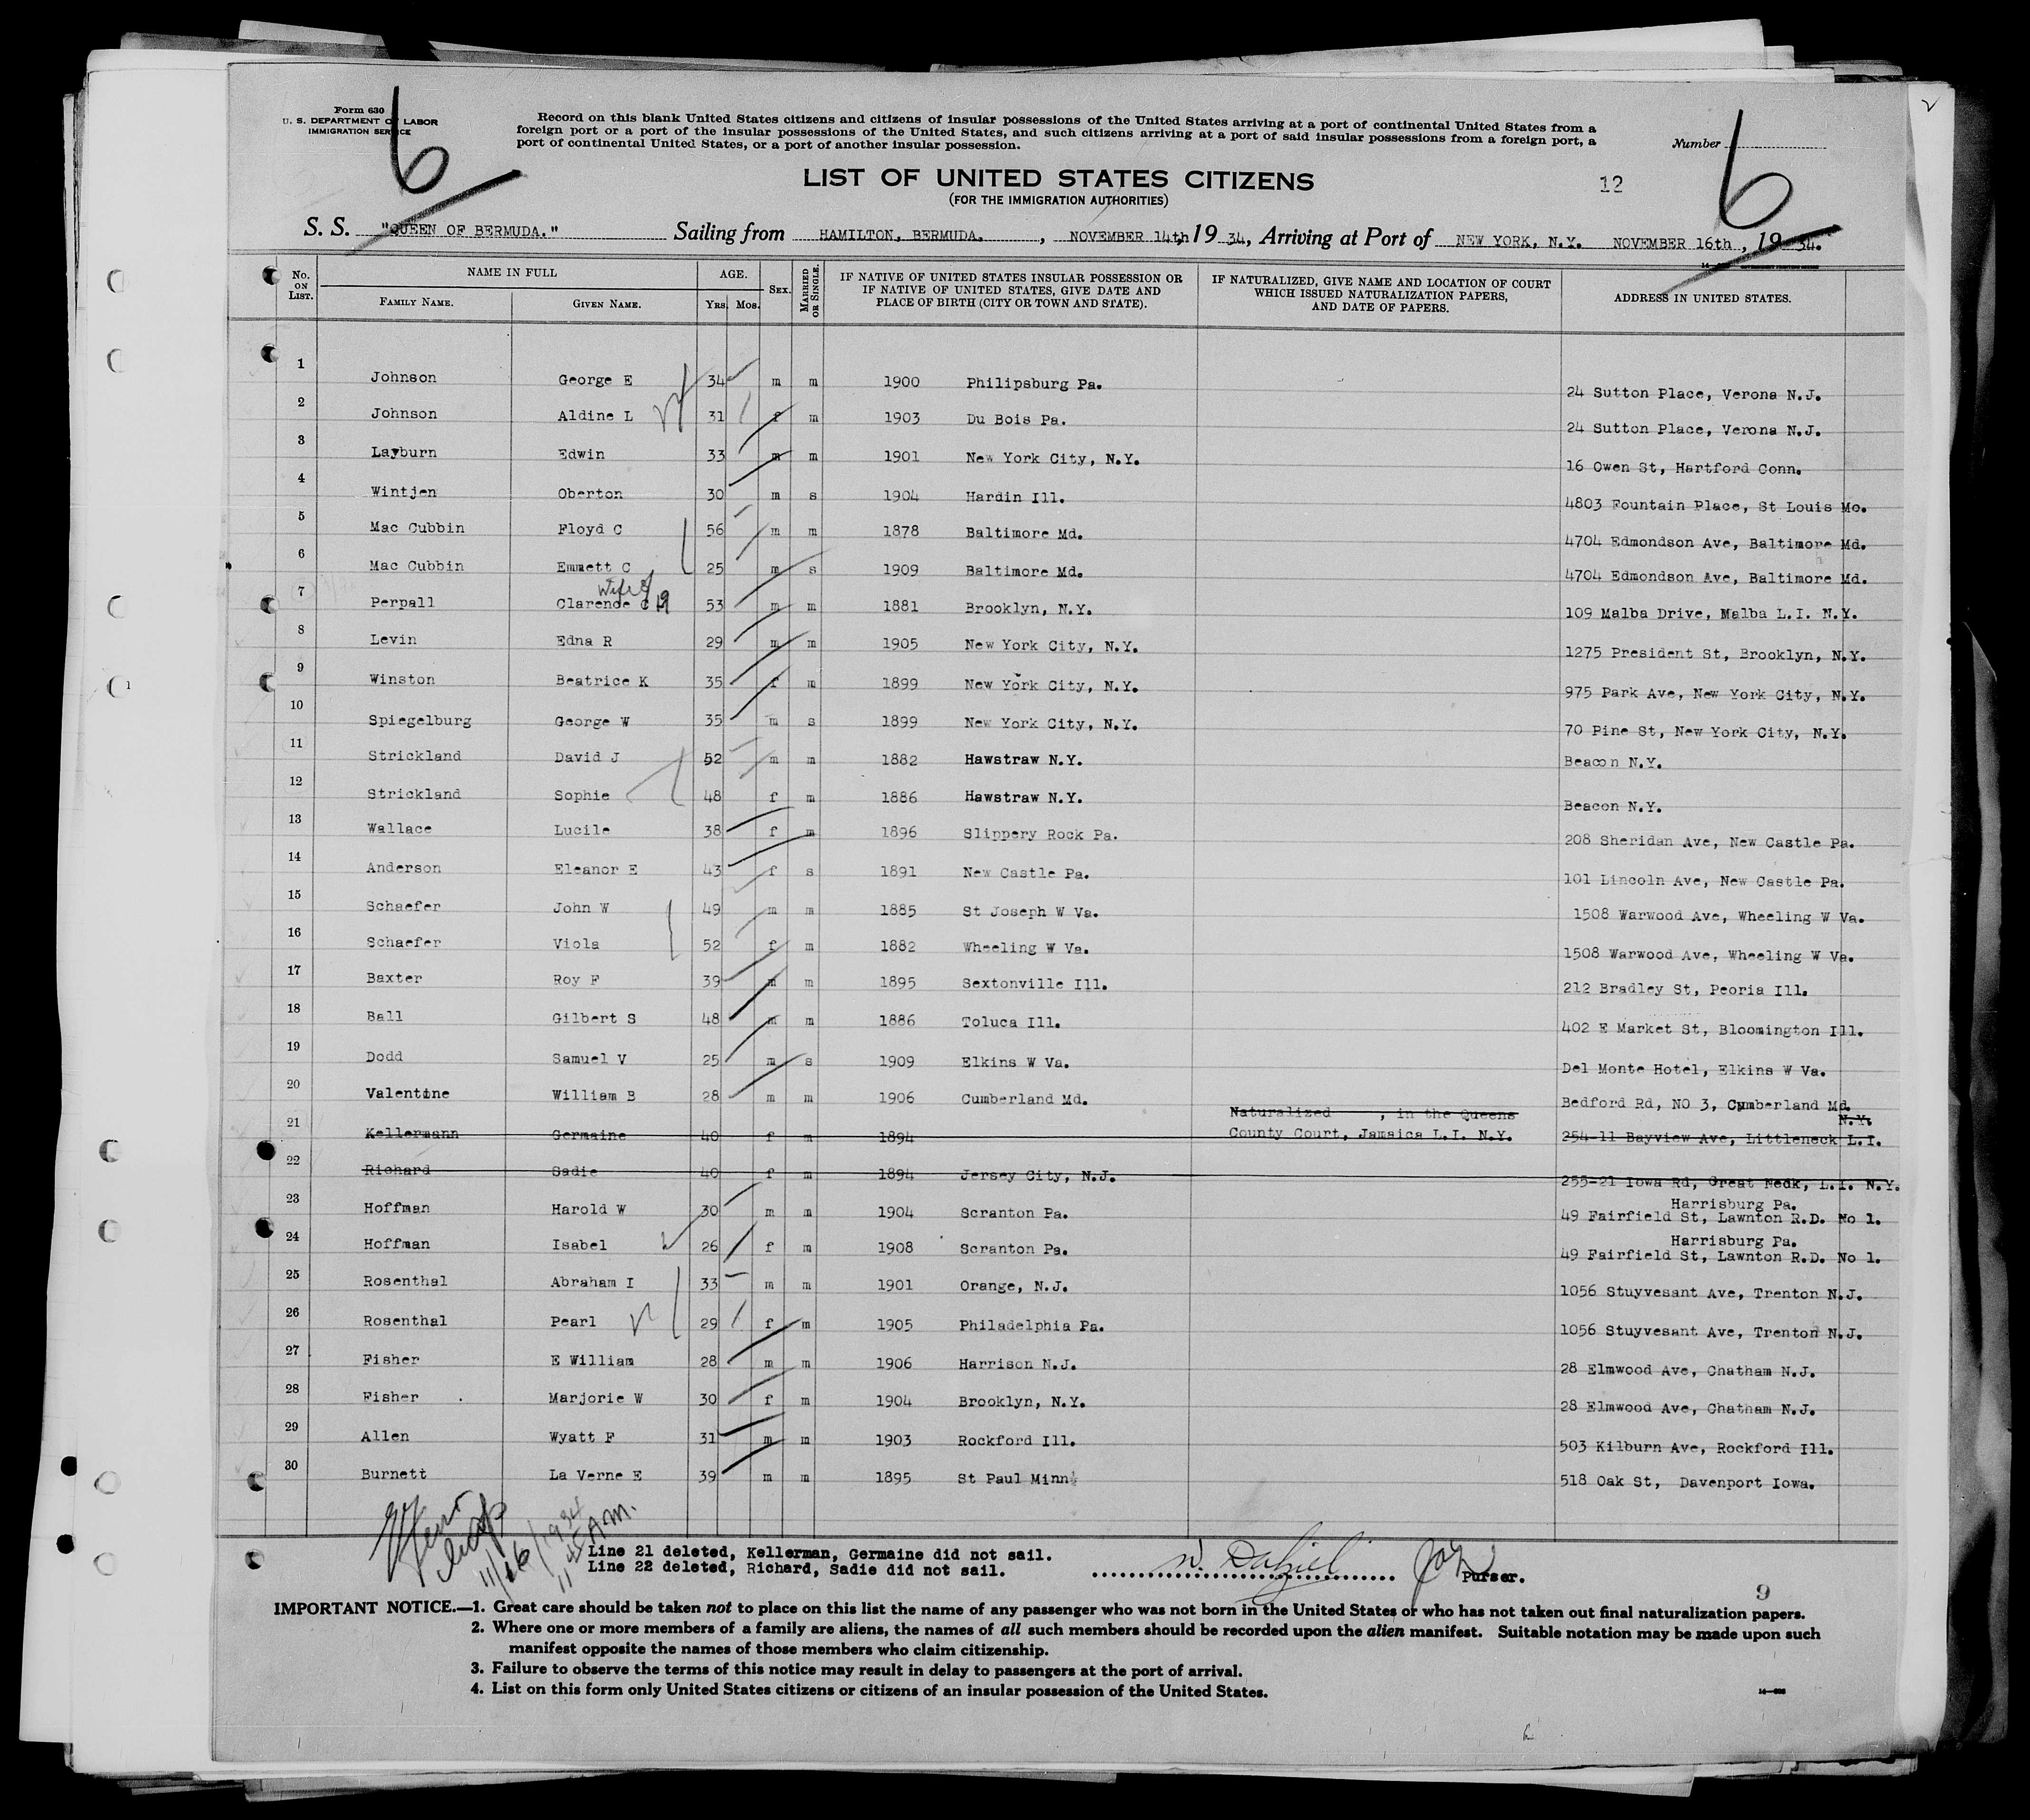 Form 630
U. S. DEPARTMENT OF LABOR
IMMIGRATION SERVICE
6
Record on this blank United States citizens and citizens of insular possessions of the United States arriving at a port of continental United States from a
foreign port or a port of the insular possessions of the United States, and such citizens arriving at a port of said insular possessions from a foreign port, a
port of continental United States, or a port of another insular possession.
Number
6
LIST OF UNITED STATES CITIZENS
12
(FOR THE IMMIGRATION AUTHORITIES)
S. S. "QUEEN OF BERMUDA." Sailing from HAMILTON, BERMUDA. , NOVEMBER 14th, 19 34, Arriving at Port of NEW YORK, N.Y. NOVEMBER 16th, 19 34.
No. ON LIST. NAME IN FULL FAMILY NAME. GIVEN NAME. AGE. YRS. MOS. SEX. MARRIED OR SINGLE. IF NATIVE OF UNITED STATES INSULAR POSSESSION OR IF NATIVE OF UNITED STATES, GIVE DATE AND PLACE OF BIRTH (CITY OR TOWN AND STATE). IF NATURALIZED, GIVE NAME AND LOCATION OF COURT WHICH ISSUED NATURALIZATION PAPERS, AND DATE OF PAPERS. ADDRESS IN UNITED STATES.
1 Johnson George E 34 m m 1900 Philipsburg Pa. 24 Sutton Place, Verona N.J.
2 Johnson Aldine L 31 f m 1903 Du Bois Pa. 24 Sutton Place, Verona N.J.
3 Layburn Edwin 33 m m 1901 New York City, N.Y. 16 Owen St, Hartford Conn.
4 Wintjen Oberton 30 m s 1904 Hardin Ill. 4803 Fountain Place, St Louis Mo.
5 Mac Cubbin Floyd C 56 m m 1878 Baltimore Md. 4704 Edmondson Ave, Baltimore Md.
6 Mac Cubbin Emmett C 25 m s 1909 Baltimore Md. 4704 Edmondson Ave, Baltimore Md.
Wife
7 Perpall Clarence C 53 m m 1881 Brooklyn, N.Y. 109 Malba Drive, Malba L.I. N.Y.
8 Levin Edna R 29 m m 1905 New York City, N.Y. 1275 President St, Brooklyn, N.Y.
9 Winston Beatrice K 35 f m 1899 New York City, N.Y. 975 Park Ave, New York City, N.Y.
10 Spiegelburg George W 35 m s 1899 New York City, N.Y. 70 Pine St, New York City, N.Y.
11 Strickland David J 52 m m 1882 Hawstraw N.Y. Beacon N.Y.
12 Strickland Sophie 48 f m 1886 Hawstraw N.Y. Beacon N.Y.
13 Wallace Lucile 38 f m 1896 Slippery Rock Pa. 208 Sheridan Ave, New Castle Pa.
14 Anderson Eleanor E 43 f s 1891 New Castle Pa. 101 Lincoln Ave, New Castle Pa.
15 Schaefer John W 49 m m 1885 St Joseph W Va. 1508 Warwood Ave, Wheeling W Va.
16 Schaefer Viola 52 f m 1882 Wheeling W Va. 1508 Warwood Ave, Wheeling W Va.
17 Baxter Roy F 39 m m 1895 Sextonville Ill. 212 Bradley St, Peoria Ill.
18 Ball Gilbert S 48 m m 1886 Toluca Ill. 402 E Market St, Bloomington Ill.
19 Dodd Samuel V 25 m s 1909 Elkins W Va. Del Monte Hotel, Elkins W Va.
20 Valentine William B 28 m m 1906 Cumberland Md. Bedford Rd, NO 3, Cumberland Md.
Naturalized , in the Queens N.Y.
21 Kellermann Germaine 40 f m 1894 County Court, Jamaica L.I. N.Y. 254-11 Bayview Ave, Littleneck L.I.
22 Richard Sadie 40 f m 1894 Jersey City, N.J. 255-21 Iowa Rd, Great Neck, L.I. N.Y.
Harrisburg Pa.
23 Hoffman Harold W 30 m m 1904 Scranton Pa. 49 Fairfield St, Lawnton R.D. No 1.
Harrisburg Pa.
24 Hoffman Isabel 26 f m 1908 Scranton Pa. 49 Fairfield St, Lawnton R.D. No 1.
25 Rosenthal Abraham I 33 m m 1901 Orange, N.J. 1056 Stuyvesant Ave, Trenton N.J.
26 Rosenthal Pearl 29 f m 1905 Philadelphia Pa. 1056 Stuyvesant Ave, Trenton N.J.
27 Fisher E William 28 m m 1906 Harrison N.J. 28 Elmwood Ave, Chatham N.J.
28 Fisher Marjorie W 30 f m 1904 Brooklyn, N.Y. 28 Elmwood Ave, Chatham N.J.
29 Allen Wyatt F 31 m m 1903 Rockford Ill. 503 Kilburn Ave, Rockford Ill.
30 Burnett La Verne E 39 m m 1895 St Paul Minn. 518 Oak St, Davenport Iowa.
11/16/1934
11 45 A.M.
Line 21 deleted, Kellerman, Germaine did not sail.
Line 22 deleted, Richard, Sadie did not sail.
Purser.
9
IMPORTANT NOTICE.—1. Great care should be taken not to place on this list the name of any passenger who was not born in the United States or who has not taken out final naturalization papers.
2. Where one or more members of a family are aliens, the names of all such members should be recorded upon the alien manifest. Suitable notation may be made upon such
manifest opposite the names of those members who claim citizenship.
3. Failure to observe the terms of this notice may result in delay to passengers at the port of arrival.
4. List on this form only United States citizens or citizens of an insular possession of the United States.